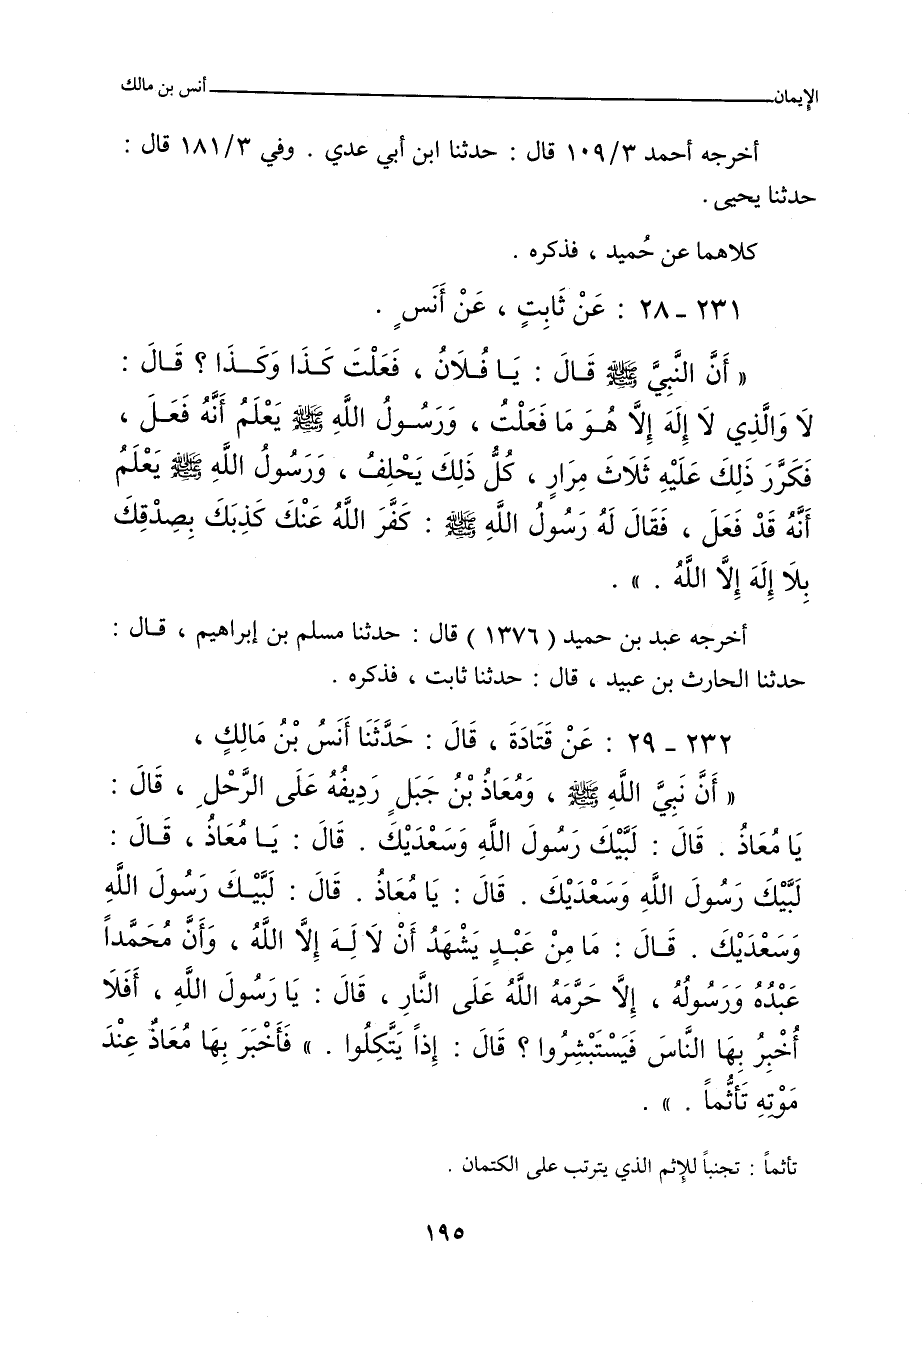 الإيمان ــــــــــ أنس بن مالك
أخرجه أحمد ١٠٩/٣ قال : حدثنا ابن أبي عدي . وفي ١٨١/٣ قال :
حدثنا يحيى .
كلاهما عن حُميد ، فذكره .
٢٣١ - ٢٨ : عَنْ ثَابِتٍ ، عَنْ أَنَسٍ .
« أَنَّ النَّبِيَّ ﷺ قَالَ : يَا فُلَانُ ، فَعَلْتَ كَذَا وَكَذَا ؟ قَالَ :
لَا وَالَّذِي لَا إِلَهَ إِلَّا هُوَ مَا فَعَلْتُ ، وَرَسُولُ اللَّهِ ﷺ يَعْلَمُ أَنَّهُ فَعَلَ ،
فَكَرَّرَ ذَلِكَ عَلَيْهِ ثَلَاثَ مِرَارٍ ، كُلُّ ذَلِكَ يَحْلِفُ ، وَرَسُولُ اللَّهِ ﷺ يَعْلَمُ
أَنَّهُ قَدْ فَعَلَ ، فَقَالَ لَهُ رَسُولُ اللَّهِ ﷺ : كَفَّرَ اللَّهُ عَنْكَ كَذِبَكَ بِصِدْقِكَ
بِلَا إِلَهَ إِلَّا اللَّهُ . » .
أخرجه عبد بن حميد ( ١٣٧٦ ) قال : حدثنا مسلم بن إبراهيم ، قال :
حدثنا الحارث بن عبيد ، قال : حدثنا ثابت ، فذكره .
٢٣٢ - ٢٩ : عَنْ قَتَادَةَ ، قَالَ : حَدَّثَنَا أَنَسُ بْنُ مَالِكٍ ،
« أَنَّ نَبِيَّ اللَّهِ ﷺ ، وَمُعَاذُ بْنُ جَبَلٍ رَدِيفُهُ عَلَى الرَّحْلِ ، قَالَ :
يَا مُعَاذُ . قَالَ : لَبَّيْكَ رَسُولَ اللَّهِ وَسَعْدَيْكَ . قَالَ : يَا مُعَاذُ ، قَالَ :
لَبَّيْكَ رَسُولَ اللَّهِ وَسَعْدَيْكَ . قَالَ : يَا مُعَاذُ . قَالَ : لَبَّيْكَ رَسُولَ اللَّهِ
وَسَعْدَيْكَ . قَالَ : مَا مِنْ عَبْدٍ يَشْهَدُ أَنْ لَا لَهَ إِلَّا اللَّهُ ، وَأَنَّ مُحَمَّداً
عَبْدُهُ وَرَسُولُهُ ، إِلَّا حَرَّمَهُ اللَّهُ عَلَى النَّارِ ، قَالَ : يَا رَسُولَ اللَّهِ ، أَفَلَا
أُخْبِرُ بِهَا النَّاسَ فَيَسْتَبْشِرُوا ؟ قَالَ : إِذاً يَتَّكِلُوا . » فَأَخْبَرَ بِهَا مُعَاذٌ عِنْدَ
مَوْتِهِ تَأَثُّماً . » .
تأثماً : تجنباً للإثم الذي يترتب على الكتمان .
١٩٥